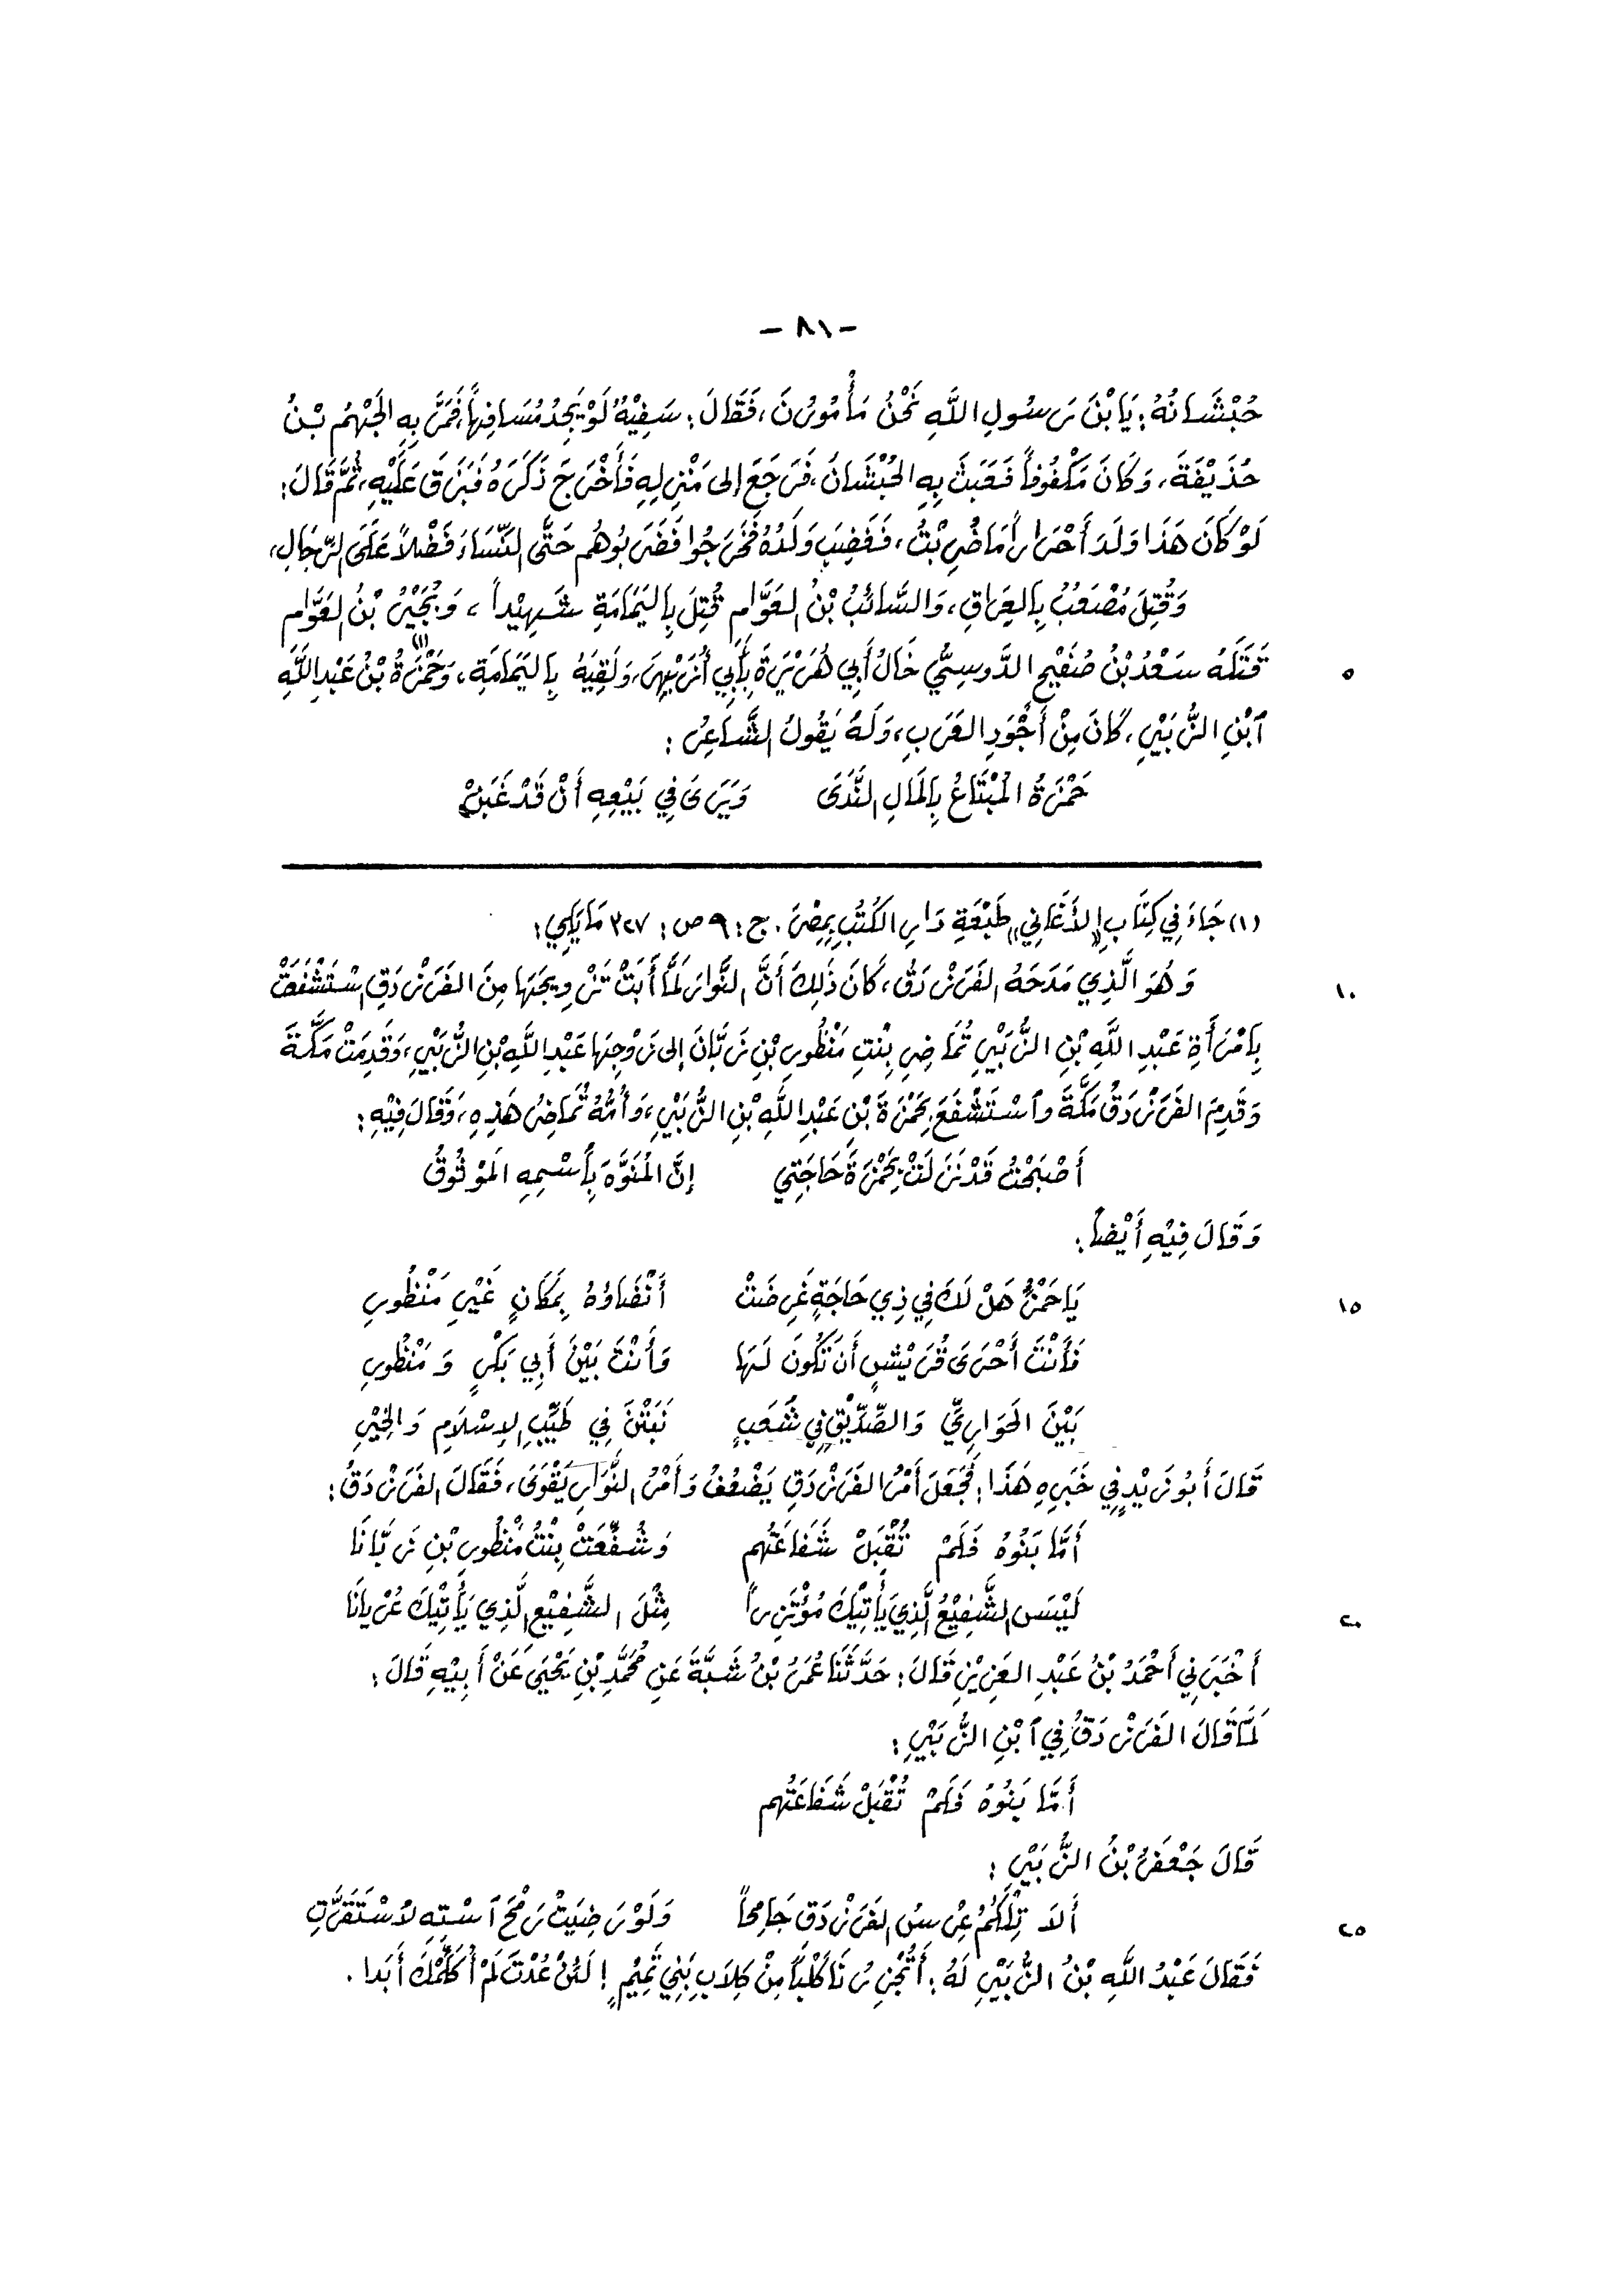 - ٨١ -
حُبْشَانُهُ: يَا بْنَ رَسُولِ اللَّهِ نَحْنُ مَأْمُورُونَ، فَقَالَ: سَفِيْهٌ لَوْ يَجِدُ مُسَافِهاً، فَمَرَّ بِهِ الجَهْمُ بْنُ
حُذَيْفَةَ، وَكَانَ مَكْفُوفاً فَعَبَثَ بِهِ الحُبْشَانَ، فَرَجَعَ إلى مَنْزِلِهِ فَأَخْرَجَ ذَكَرَهُ فَبَزَقَ عَلَيْهِ، ثُمَّ قَالَ:
لَوْ كَانَ هَذَا وَلَدَ أَحْرَاراً مَا ضُرِبْتُ، فَغَضِبَ وَلَدُهُ فَخَرَجُوا فَضَرَبُوهُم حَتَّى النِّسَاءَ فَضْلاً عَلَى الرِّجَالِ،
وَقُتِلَ مُصْعَبُ بِالعِرَاقِ، وَالسَّائِبُ بْنُ العَوَّامِ قُتِلَ بِاليَمَامَةِ شَهِيْداً، وَبُجَيْرُ بْنُ العَوَّامِ
٥ قَتَلَهُ سَعْدُ بْنُ صُفَيْحٍ الدَّوسِيُّ خَالُ أَبِي هُرَيْرَةَ بِأَبِي أُزَيْهِرَ، وَلَقِيَهُ بِاليَمَامَةِ، وَحَمْزَةُ (١) بْنُ عَبْدِ اللَّهِ
ٱبْنِ الزُّبَيْرِ، كَانَ مِنْ أَجْوَدِ العَرَبِ، وَلَهُ يَقُولُ الشَّاعِرُ:
حَمْزَةُ المُبْتَاعُ بِالمَالِ النَّدَى وَيَرَى فِي بَيْعِهِ أَنْ قَدْ غَبَنْ
(١) جَاءَ فِي كِتَابِ «الأَغَانِي» طَبْعَةِ دَارِ الكُتُبِ بِمِصْرَ. ج: ٩ ص: ٣٢٧ مَا يَلِي:
١٠ وَهُوَ الَّذِي مَدَحَهُ الفَرَزْدَقُ، كَانَ ذَلِكَ أَنَّ النَّوَارَ لَمَّا أَبَتْ تَزْوِيجَهَا مِنَ الفَرَزْدَقِ اسْتَشْفَعَتْ
بِامْرَأَةِ عَبْدِ اللَّهِ بْنِ الزُّبَيْرِ تُمَاضِرِ بِنْتِ مَنْظُورِ بْنِ زَبَّانَ إلى زَوْجِهَا عَبْدِ اللَّهِ بْنِ الزُّبَيْرِ، وَقَدِمَتْ مَكَّةَ
وَقَدِمَ الفَرَزْدَقُ مَكَّةَ وٱسْتَشْفَعَ بِحَمْزَةَ بْنِ عَبْدِ اللَّهِ بْنِ الزُّبَيْرِ، وَأُمُّهُ تُمَاضِرُ هَذِهِ، وَقَالَ فِيْهِ:
أَصْبَحْتُ قَدْ نَزَلَتْ بِحَمْزَةَ حَاجَتِي إنَّ المُنَوَّهَ بِأَسْمِهِ المَوْثُوقُ
وَقَالَ فِيْهِ أَيْضاً:
١٥ يَا حَمْزُ هَلْ لَكَ فِي ذِي حَاجَةٍ غَرِضَتْ أَنْضَاؤُهُ بِمَكَانٍ غَيْرِ مَمْطُورِ
فَأَنْتَ أَحْرَى قُرَيْشٍ أَن تَكُونَ لَهَا وَأَنْتَ بَيْنَ أَبِي بَكْرٍ وَمَنْظُورِ
بَيْنَ الحَوَارِيِّ وَالصِّدِّيْقِ فِي شُعَبٍ نَبَتْنَ فِي طَيِّبِ الإِسْلَامِ وَالخِيْرِ
قَالَ أَبُو زَيْدٍ فِي خَبَرِهِ هَذَا: فَجَعَلَ أَمْرُ الفَرَزْدَقِ يَضْعُفُ وَأَمْرُ النَّوَارِ يَقْوَى، فَقَالَ الفَرَزْدَقُ:
أَمَّا بَنُوهُ فَلَمْ تُقْبَلْ شَفَاعَتُهُم وَشُفِّعَتْ بِنْتُ مَنْظُورِ بْنِ زَبَّانَا
٢٠ لَيْسَ الشَّفِيْعُ الَّذِي يَأْتِيْكَ مُؤْتَزِراً مِثْلَ الشَّفِيْعِ الَّذِي يَأْتِيْكَ عُرْيانَا
أَخْبَرَنِي أَحْمَدُ بْنُ عَبْدِ العَزِيْزِ قَالَ: حَدَّثَنَا عُمَرُ بْنُ شَبَّةَ عَنِ مُحَمَّدِ بْنِ يَحْيَى عَنْ أَبِيْهِ قَالَ:
لَمَّا قَالَ الفَرَزْدَقُ فِي ٱبْنِ الزُّبَيْرِ:
أَمَّا بَنُوهُ فَلَمْ تُقْبَلْ شَفَاعَتُهُم
قَالَ جَعْفَرُ بْنُ الزُّبَيْرِ:
٢٥ أَلاَ تِلْكُمُ عِرْسُ الفَرَزْدَقِ جَامِحاً وَلَوْ رَضِيَتْ رَمْحَ ٱسْتِهِ لاَسْتَقَرَّتِ
فَقَالَ عَبْدُ اللَّهِ بْنُ الزُّبَيْرِ لَهُ: أَتُجْزِرُنَا كَلْباً مِنْ كِلاَبِ بَنِي تَمِيْمٍ! لَئِنْ عُدْتَ لَمْ أُكَلِّمْكَ أَبَدا.